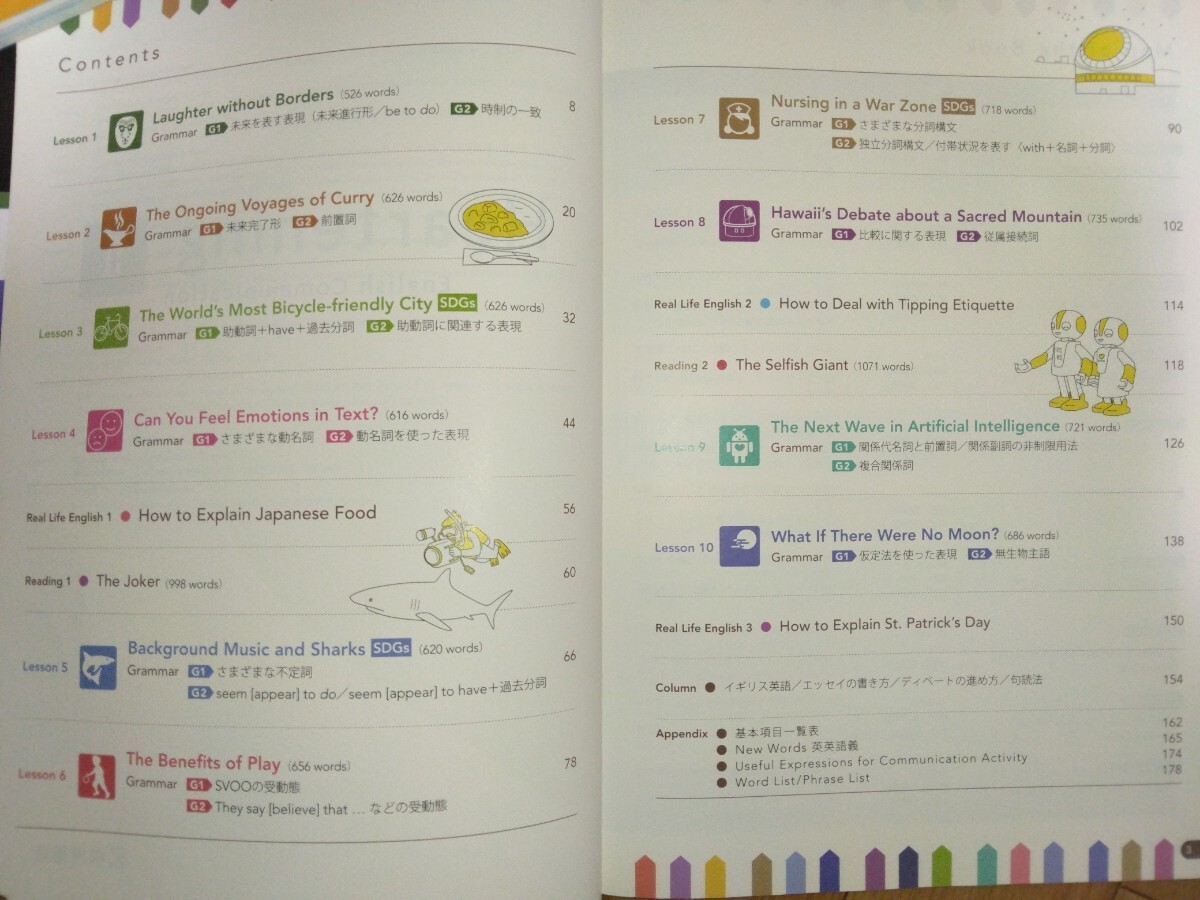 Contents
Lesson 1 Laughter without Borders (526 words) 8
Grammar G1 未来を表す表現（未来進行形／be to do） G2 時制の一致
Lesson 2 The Ongoing Voyages of Curry (626 words) 20
Grammar G1 未来完了形 G2 前置詞
Lesson 3 The World's Most Bicycle-friendly City SDGs (626 words) 32
Grammar G1 助動詞＋have＋過去分詞 G2 助動詞に関連する表現
Lesson 4 Can You Feel Emotions in Text? (616 words) 44
Grammar G1 さまざまな動名詞 G2 動名詞を使った表現
Real Life English 1 ● How to Explain Japanese Food 56
Reading 1 ● The Joker (998 words) 60
Lesson 5 Background Music and Sharks SDGs (620 words) 66
Grammar G1 さまざまな不定詞
G2 seem [appear] to do／seem [appear] to have＋過去分詞
Lesson 6 The Benefits of Play (656 words) 78
Grammar G1 SVOOの受動態
G2 They say [believe] that … などの受動態
Lesson 7 Nursing in a War Zone SDGs (718 words) 90
Grammar G1 さまざまな分詞構文
G2 独立分詞構文／付帯状況を表す〈with＋名詞＋分詞〉
Lesson 8 Hawaii's Debate about a Sacred Mountain (735 words) 102
Grammar G1 比較に関する表現 G2 従属接続詞
Real Life English 2 ● How to Deal with Tipping Etiquette 114
Reading 2 ● The Selfish Giant (1071 words) 118
Lesson 9 The Next Wave in Artificial Intelligence (721 words) 126
Grammar G1 関係代名詞と前置詞／関係副詞の非制限用法
G2 複合関係詞
Lesson 10 What If There Were No Moon? (686 words) 138
Grammar G1 仮定法を使った表現 G2 無生物主語
Real Life English 3 ● How to Explain St. Patrick's Day 150
Column ● イギリス英語／エッセイの書き方／ディベートの進め方／句読法 154
Appendix ● 基本項目一覧表 162
● New Words 英英語義 165
● Useful Expressions for Communication Activity 174
● Word List/Phrase List 178
3